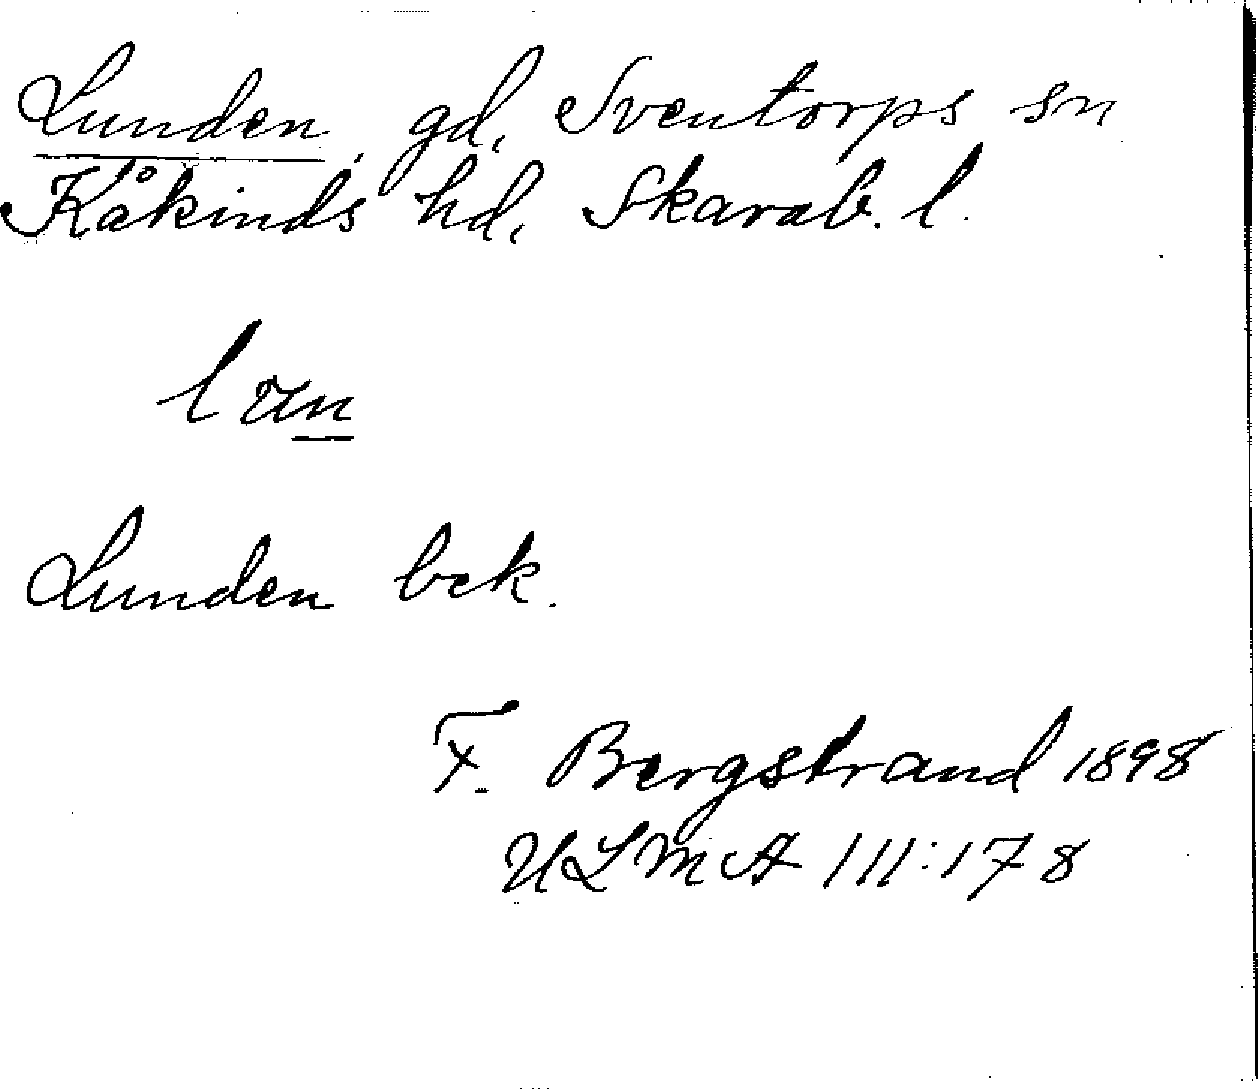 Lunden, gd, Sventorps sn
Kåkinds hd, Skarab. l.
Lunden bek.
F. Bergstrand 1898
ULMA 111:178